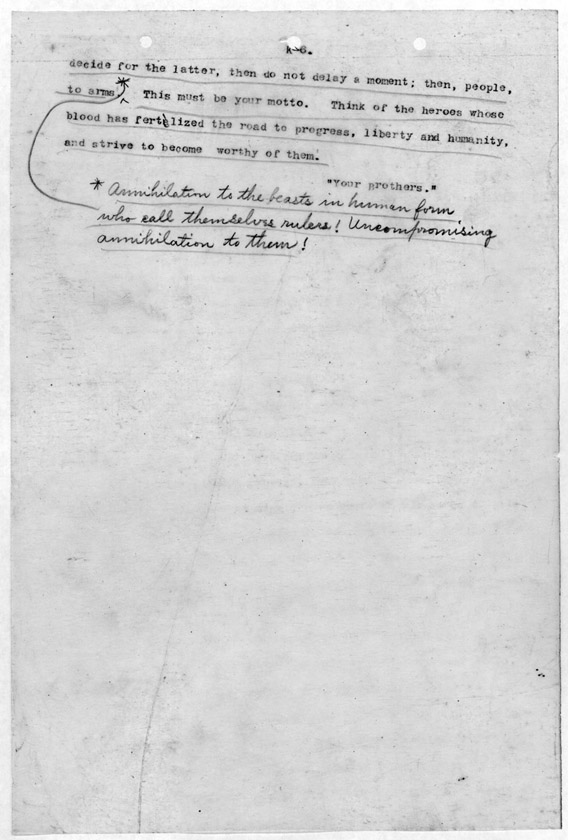 K-6.
decide for the latter, then do not delay a moment; then, people,
to arms * ^ This must be your motto. Think of the heroes whose
blood has fertilized the road to progress, liberty and humanity,
and strive to become worthy of them.
"Your brothers."
* Annihilation to the beasts in human form,
who call themselves rulers! Uncompromising
annihilation to them!